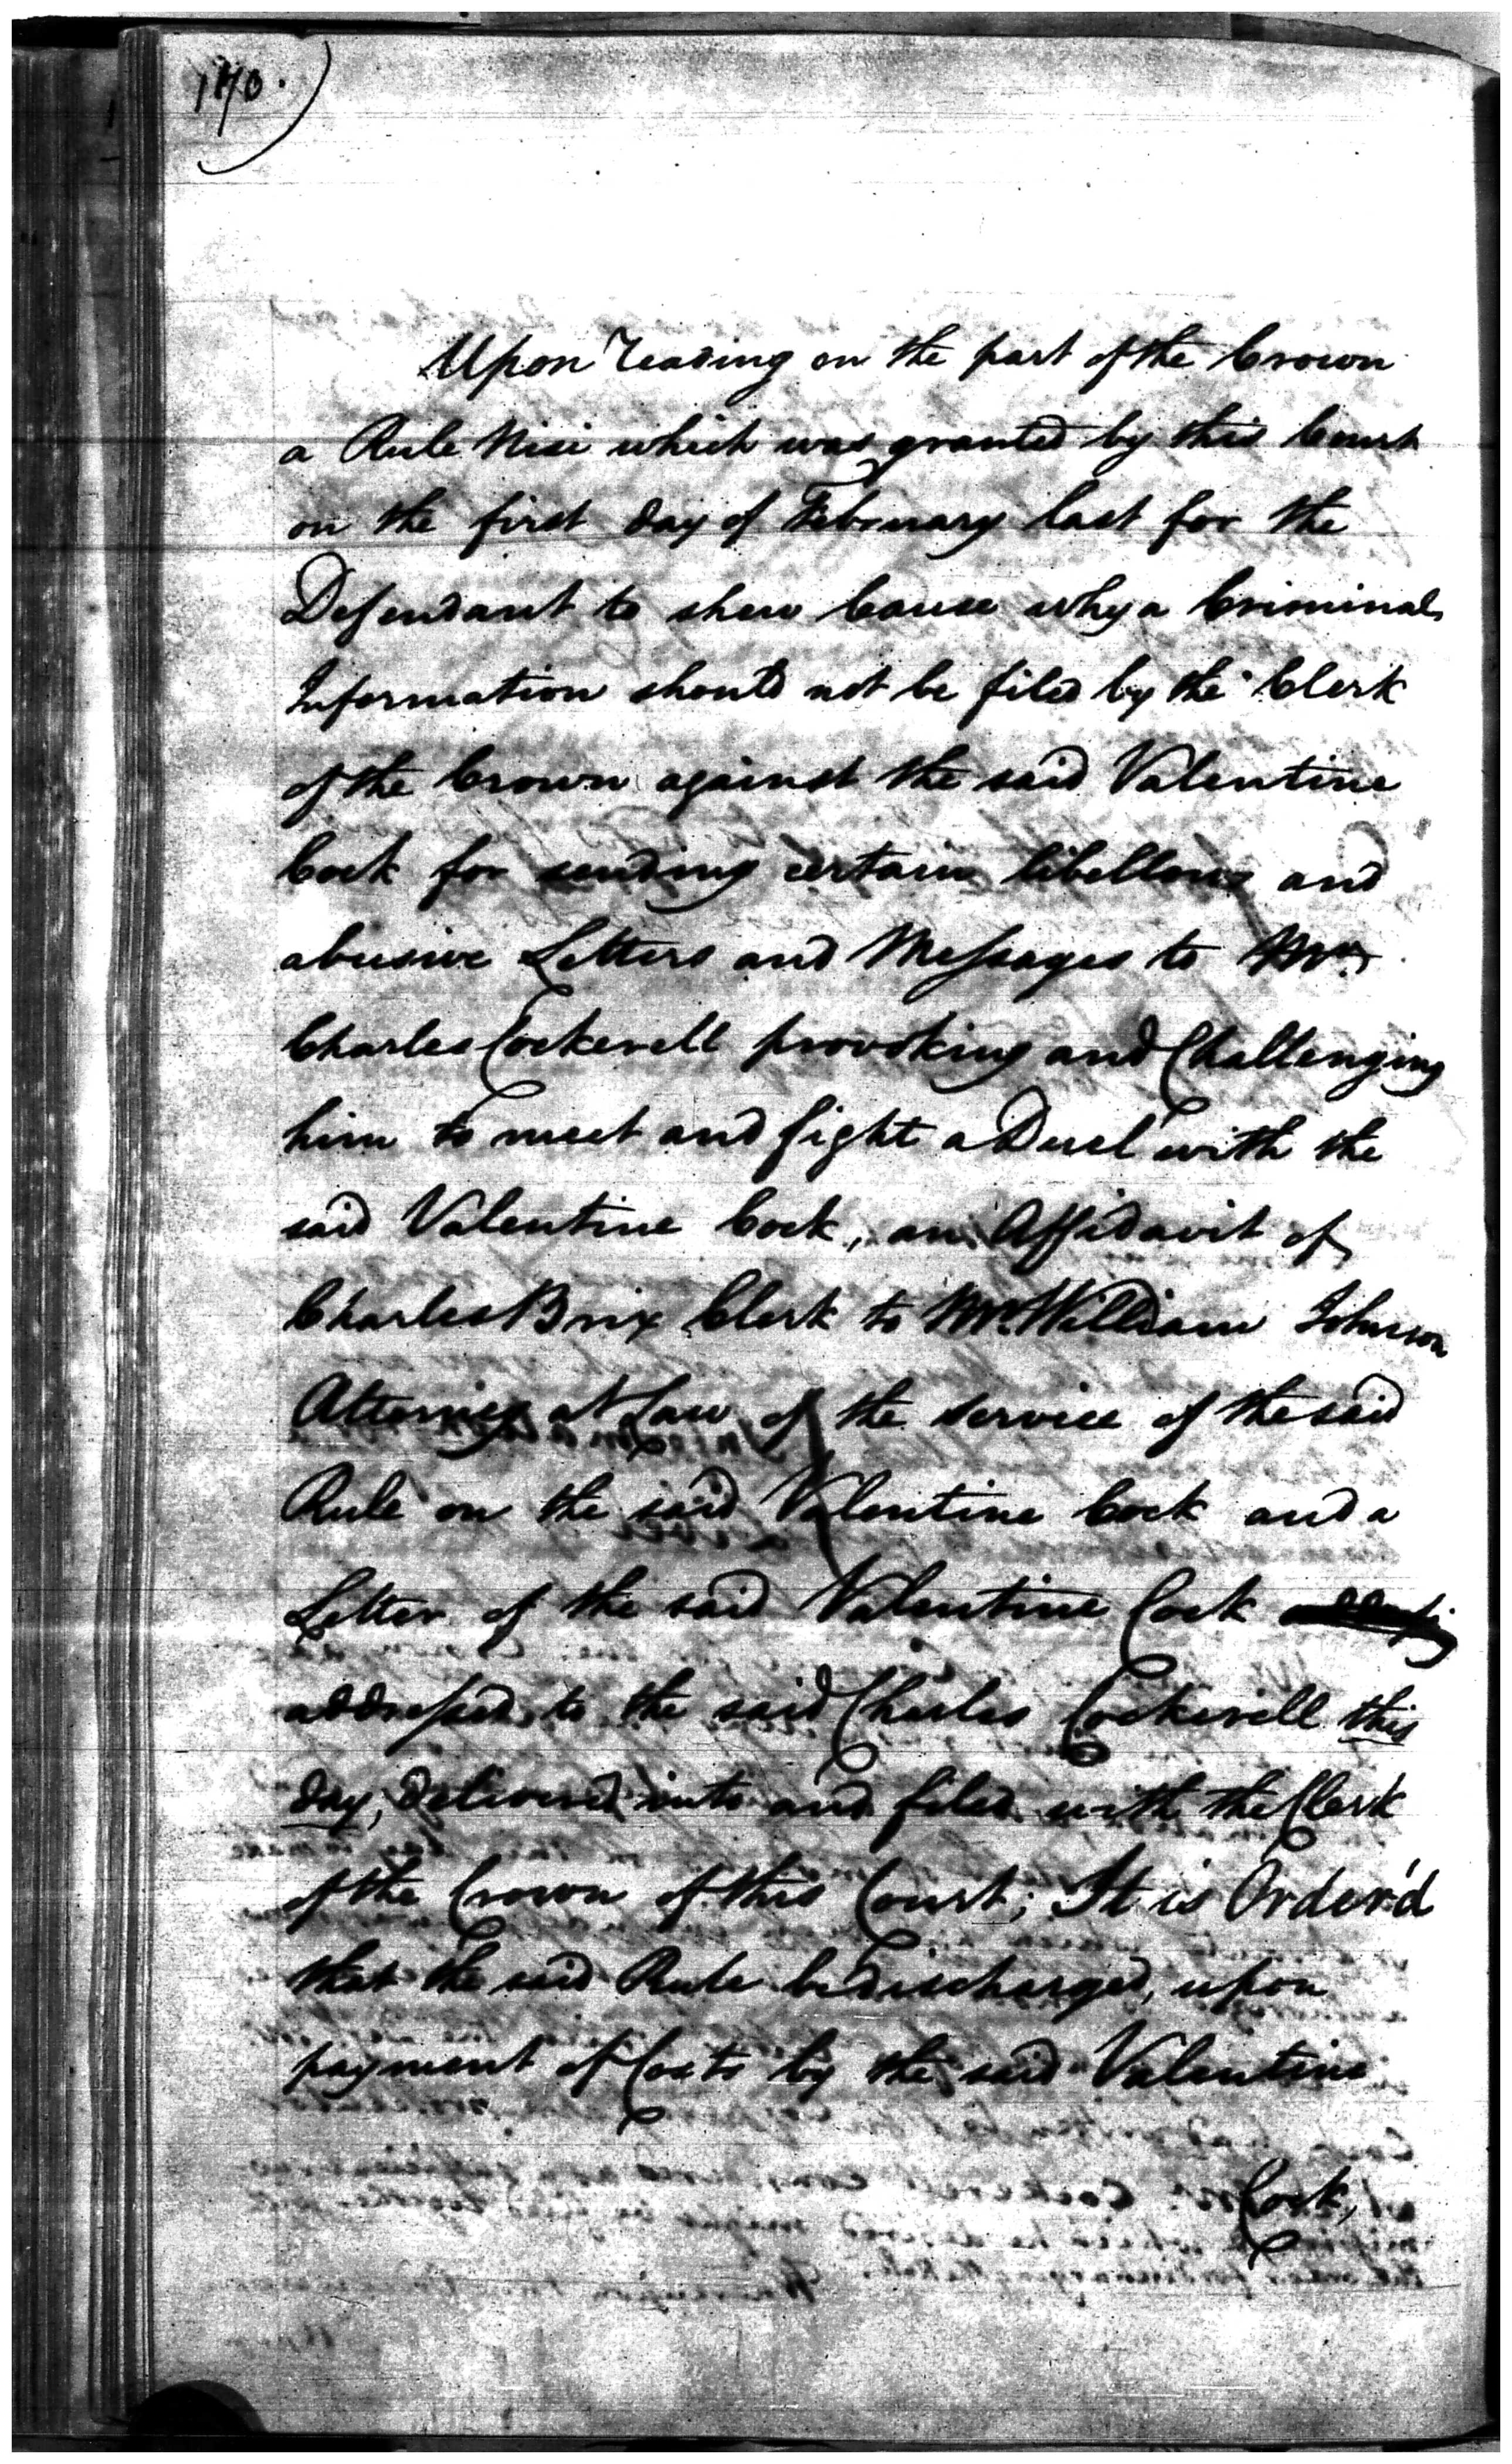 170.
Upon reading on the part of the Crown
a Rule Nisi which was granted by this Court
on the first day of February last for the
Defendant to shew Cause why a Criminal
Information should not be filed by the Clerk
of the Crown against the said Valentine
Cock for sending certain libellous and
abusive Letters and Messages to Mr.
Charles Cockerell provoking and Challenging
him to meet and fight a Duel with the
said Valentine Cock, an Affidavit of
Charles Brix Clerk to Mr. William Johnson
Attorney at Law of the service of the said
Rule on the said Valentine Cock and a
Letter of the said Valentine Cock
addressed to the said Charles Cockerell this
day, delivered into and filed with the Clerk
of the Crown of this Court; It is Order'd
that the said Rule be discharged, upon
payment of Costs by the said Valentine
Cock,